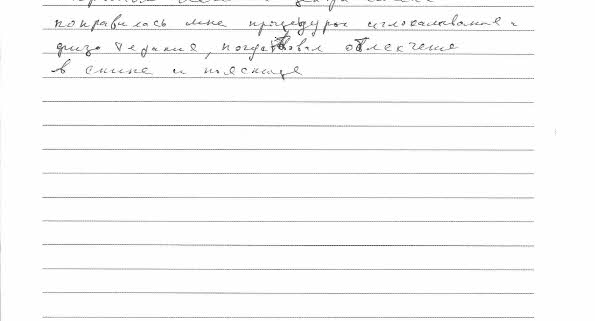 понравилась мне процедуры иглокалывание и
физо терапия, почувствовал облекчение
в спине и пояснице